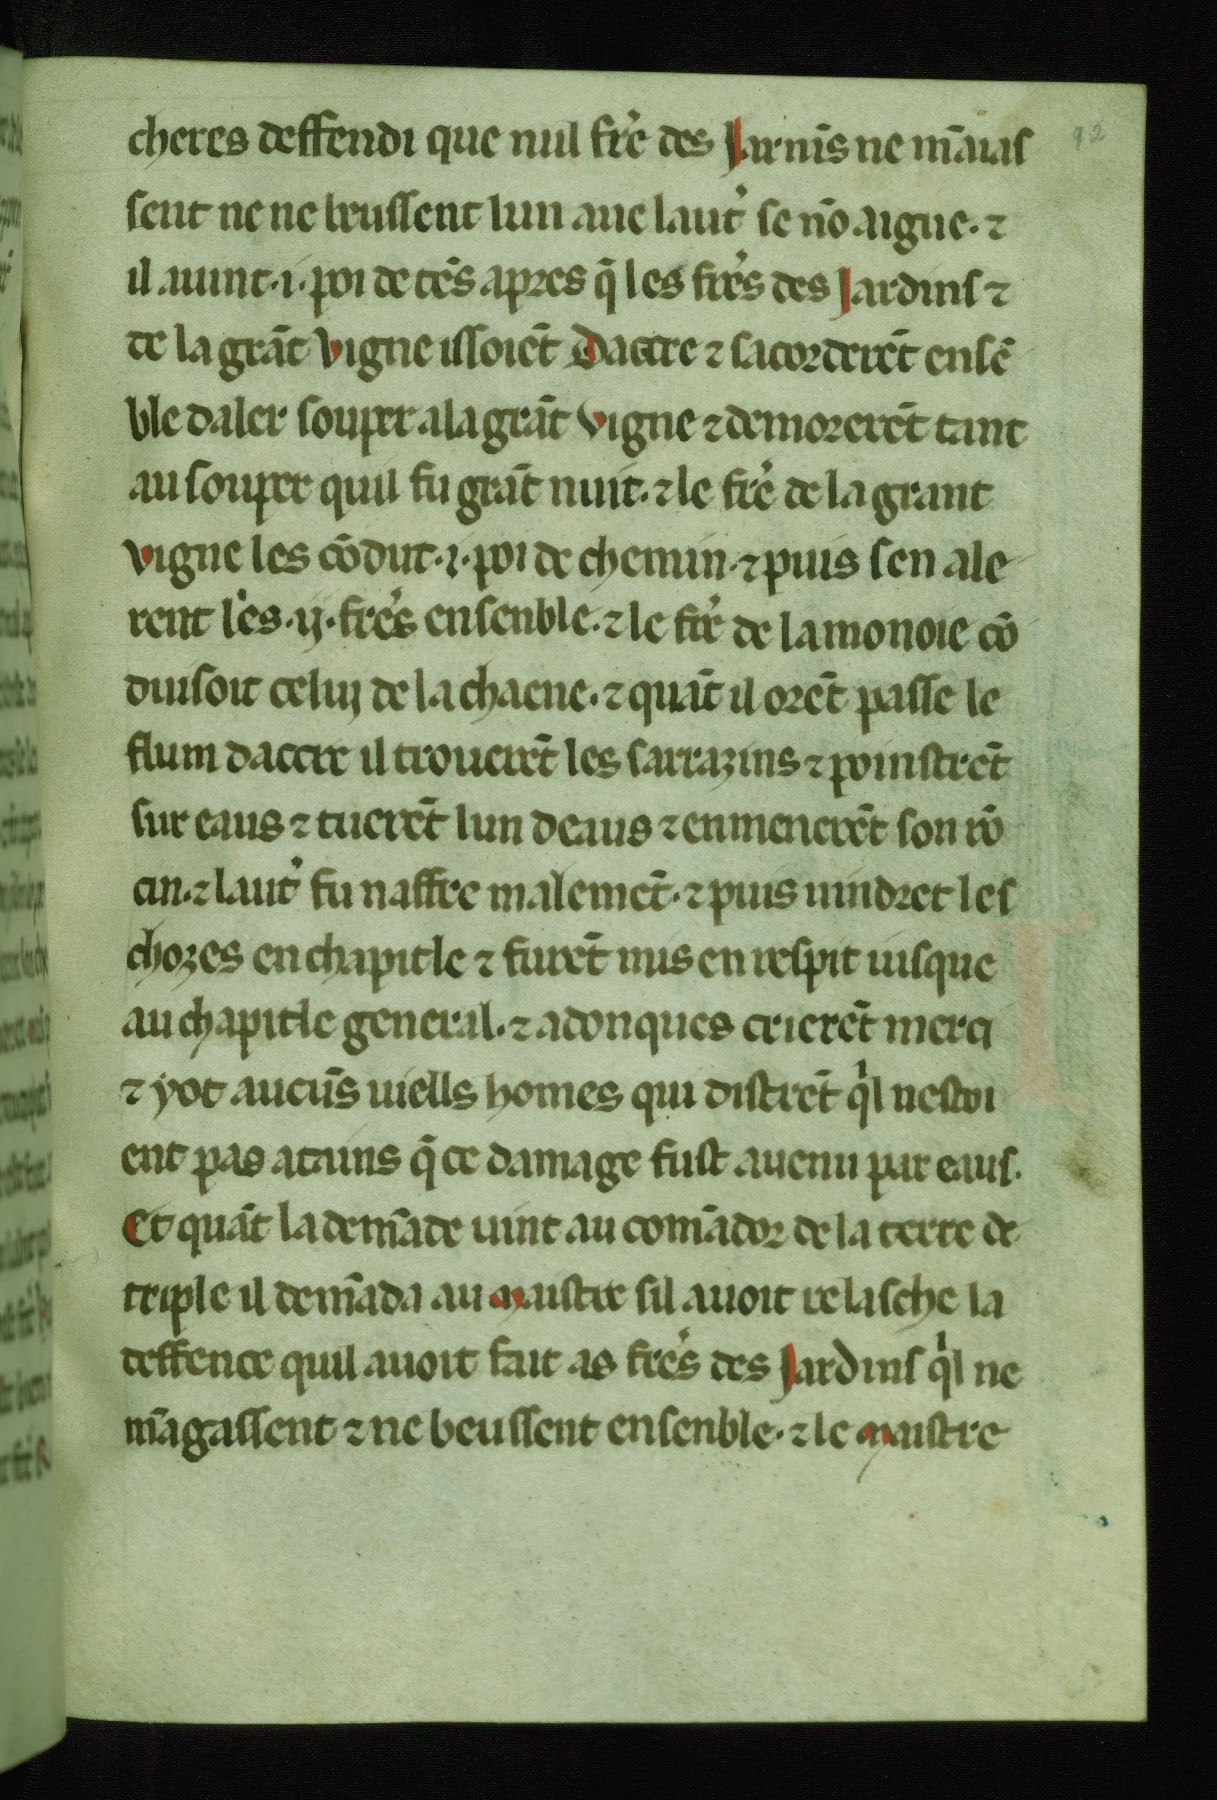 92
cheres deffendi que nul fre᷒ des Jarnīs ne māias
sent ne ne beussent lun aue laut᷒ se nō aigue. ⁊
il auint .i. poi de tēs apres q̄ les fre᷒s des Jardins ⁊
de la grāt vigne issoiēt Daccre ⁊ sacorderēt ensē
ble daler souper a la grāt vigne ⁊ demorerēt tant
au souper quil fu grāt nuit. ⁊ le fre᷒ de la grant
vigne les cōdut .i. poi de chemin. ⁊ puis sen ale
rent les .ij. fre᷒s ensenble. ⁊ le fre᷒ de la monoie cō
duisoit celuj de la chaene. ⁊ quāt il orēt passe le
flum daccre il trouerēt les sarrazins ⁊ poinstrēt
sur eaus ⁊ tuerēt lun deaus ⁊ enmenerēt son rō
cin. ⁊ laut᷒ fu naffre malemēt. ⁊ puis uindret les
chozes en chapitle ⁊ furēt mis en respit iusque
au chapitle general. ⁊ adonques crierēt merci
⁊ yot aucūs uiells homes qui distrēt qil nestoi
ent pas atains q̄ ce damage fust auenu par eaus.
Et quāt la demāde uint au comādor de la terre de
triple il demāda au Maistre sil auoit relasche la
deffence quil auoit fait as fre᷒s des Jardins qil ne
māgassent ⁊ ne beussent ensenble. ⁊ le Maistre